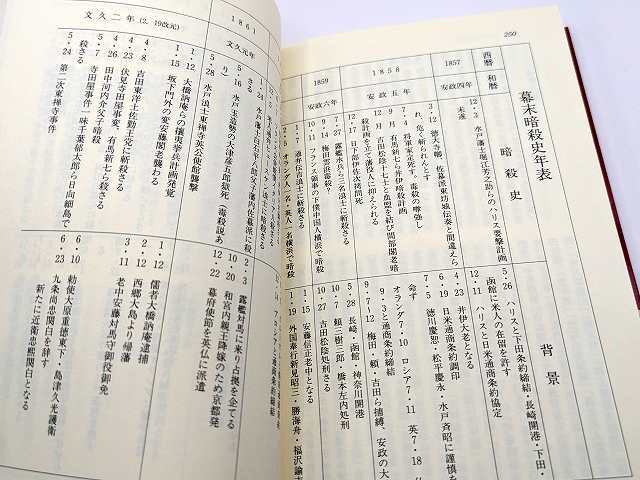 250
幕末暗殺史年表
西暦
和暦
暗殺史
背景
1857
安政四年
12・3 水戸藩士堀江芳之助らのハリス要撃計画
未遂
5・26 ハリスと下田条約締結・長崎開港・下田・
函館に米人の在留を許す
12・11 ハリスと日米通商条約協定
1858
安政五年
3・12 徳大寺卿、佐幕派東坊城伝奏と間違えら
れ、危く斬られんとす
7・4 将軍家定死す、毒殺の噂強し
9月 有馬新七ら井伊暗殺計画
12月 吉田松陰十七士と血盟を結び間部閣老暗
殺計画を立て藩役人に抑えられる
4・23 井伊大老となる
6・19 日米通商条約調印
7・5 徳川慶恕・松平慶永・水戸斉昭に謹慎を
命ず
オランダ7・10 ロシア7・11 英7・18 仏
9・3と通商条約締結
9・7―12 梅田・頼・吉田ら捕縛、安政の大
1859
安政六年
7・27
9・14 梅田雲浜毒殺?
10・11 フランス領事の下僕中国人横浜で暗殺
5・28 長崎・函館・神奈川開港
10・7 頼三樹三郎・橋本左内処刑
10・27 吉田松陰処刑さる
2・5 オランダ人一名・英人一名横浜で暗殺
1・15 安藤信正老中となる
1・19 外国奉行新見
1861
文久元年
1・24
5・28 水戸浪士東禅寺英公使館襲撃
水戸玉造勢の大津彦五郎獄死(毒殺説あ
り)
2・3 露艦対馬に来り占拠を企てる
10・20 和宮内親王降嫁のため京都発
12・22 幕府使節を英仏に派遣
文久二年(2、19改元)
1・12 大橋訥庵らの攘夷挙兵計画発覚
1・15 坂下門外の変安藤閣老襲わる
4・8 吉田東洋土佐勤王党に斬殺さる
4・23 伏見寺田屋事変、有馬新七ら殺さる
田中河内介父子暗殺
5・7 寺田屋事件一味千葉郁太郎ら日向細島で
殺さる
5・24 第二次東禅寺事件
1・12 儒者大橋訥庵逮捕
2・12 西郷大島より帰藩
3・11 老中安藤対馬守御役御免
6・10 勅使大原重徳東下・島津久光護衛
6・23 九条尚忠関白を辞す
新たに近衛忠熙関白となる